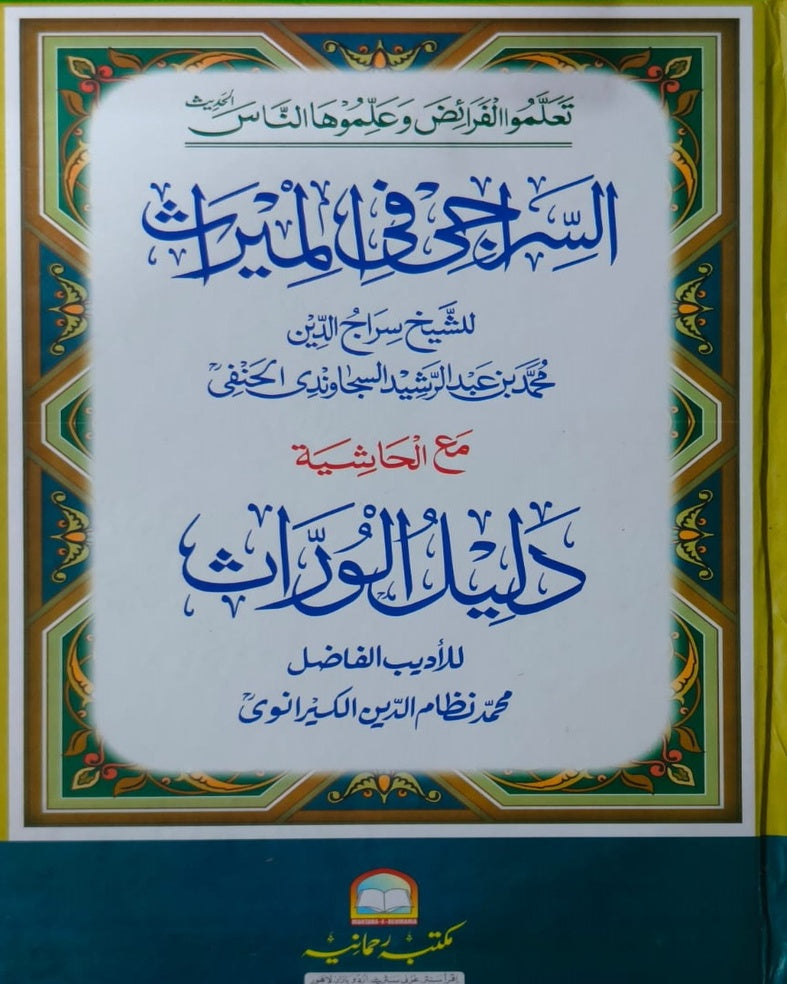 تَعَلَّمُوا الْفَرَائِضَ وَعَلِّمُوْهَا النَّاسَ الحدیث
السِّرَاجِیْ فِی الْمِیْرَاث
للشَّیخ سِرَاجُ الدِّیْن
مُحَمَّدْ بْن عَبْد الرَّشِیْد السجاوندی الحَنَفِی
مَعَ الْحَاشِيَة
دَلِيْلُ الْوُرَّاث
للأديب الفاضل
محمّد نظام الدّين الكيرانوی
MAKTABA-E-REHMANIA
مکتبہ رحمانیہ
اقرأ سنٹر غزنی سٹریٹ اردو بازار لاہور